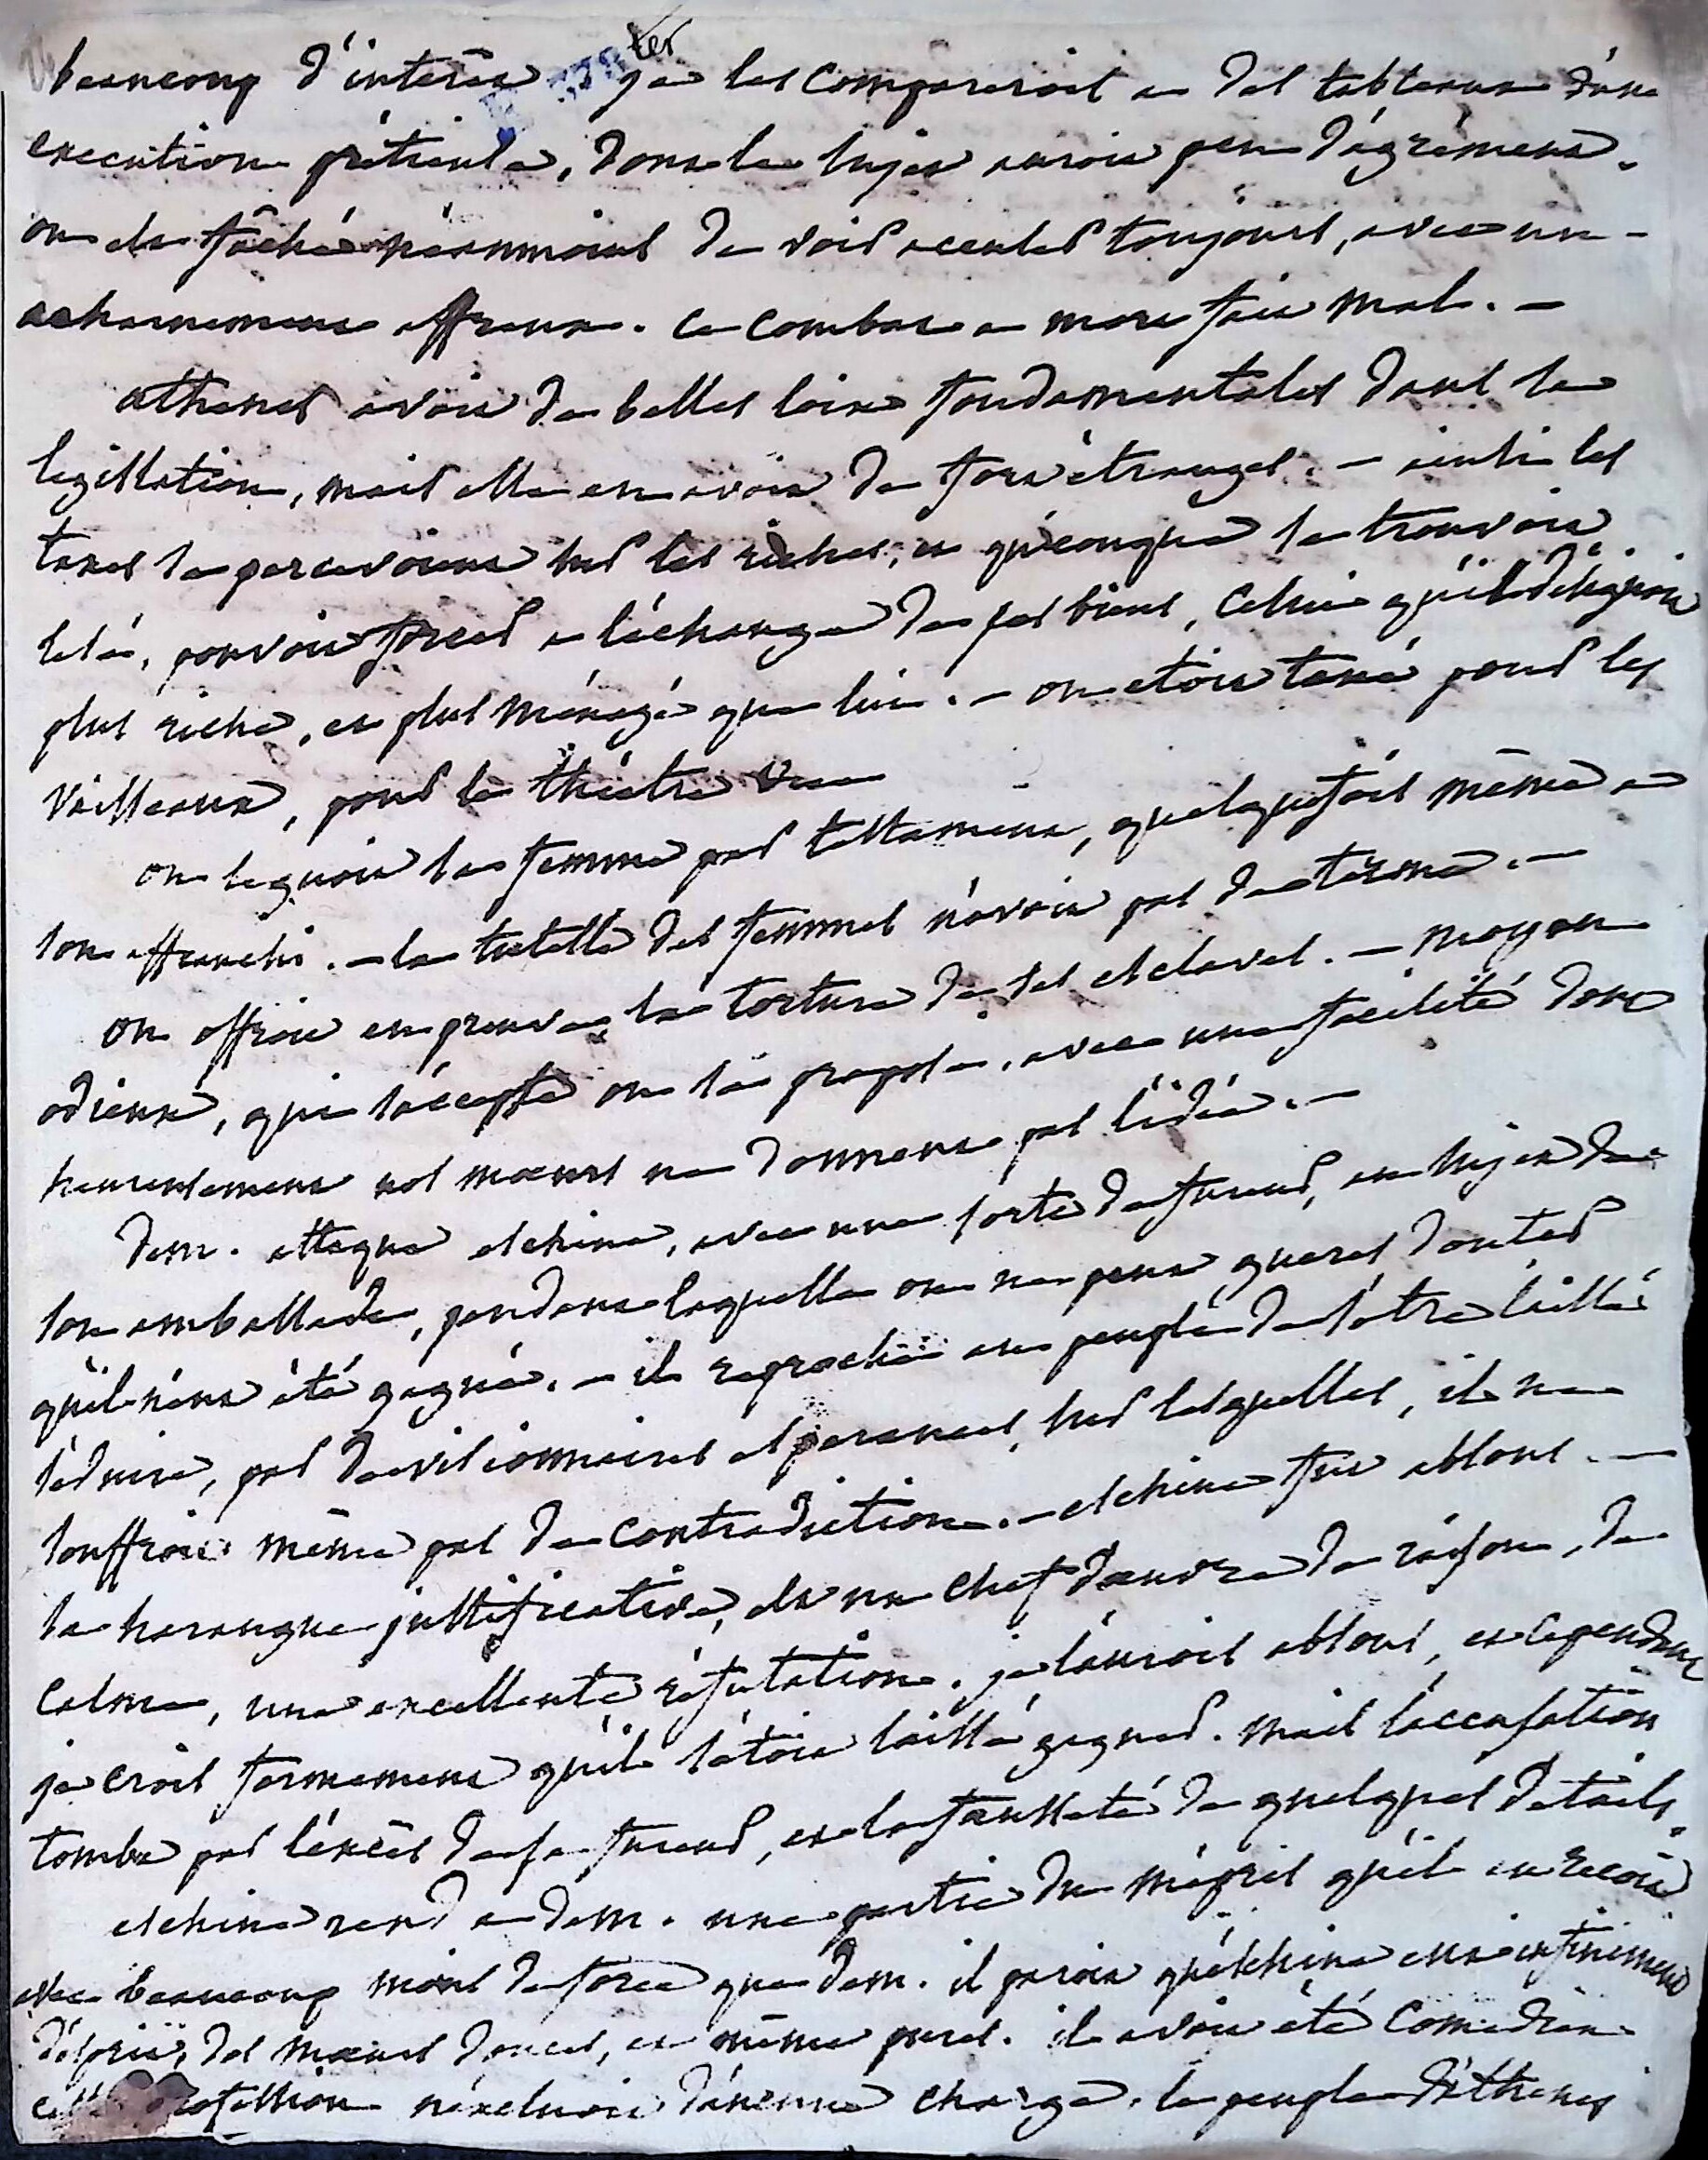 beaucoup d'interest je les comparerois a des tableaux d'une
execution prétieuse, dont le sujet auroit peu d'agrément.
on est fâché néanmoins de voir accuser toujours, avec un
acharnement affreux. ce combat a mort fait mal. —
athenes avoit de belles loix fondamentales dans sa
legislation, mais elle en avoit de fort étranges. — ainsi les
taxes se percevoient sur les riches, et quiconque se trouvoit
lésé, pouvoit forcer a l'échange de ses biens, celui qu'il désignoit
plus riche, et plus ménagé que lui. — on etoit taxé pour les
vaisseaux, pour le théâtre &c.
on leguoit sa femme par testament, quelquefois même a
son affranchi. — la tutelle des femmes n'avoit pas de terme. —
on offroit en preuve la torture de ses esclaves. — moyen
odieux, qui s'accepte ou se propose, avec une facilité dont
heureusement nos mœurs ne donnent pas l'idée. —
Dem. attaque eschine, avec une sorte de fureur, au sujet de
son ambassade, pendant laquelle on ne peut gueres douter
qu'il n'eut été gagné. — il reproche au peuple de s'être laissé
séduire, par de visionnaires esperances, sur lesquelles, il ne
souffroit même pas de contradiction. — eschine fut absous. —
sa harangue justificative, est un chef d'œuvre de raison, de
calme, une excellente réfutation. je l'aurois absous, et cependant
je crois fermement qu'il s'étoit laissé gagner. mais l'accusation
tombe par l'excès de sa fureur, et la fausseté de quelques détails.
eschine rend a dem. une partie du mépris qu'il en reçoit
avec beaucoup moins de force que dem. il paroit qu'eschine eut infiniment
d'esprit, des mœurs douces, et même pures. il avoit été comédien
cette profession n'excluoit d'aucune charge. le peuple d'athenes